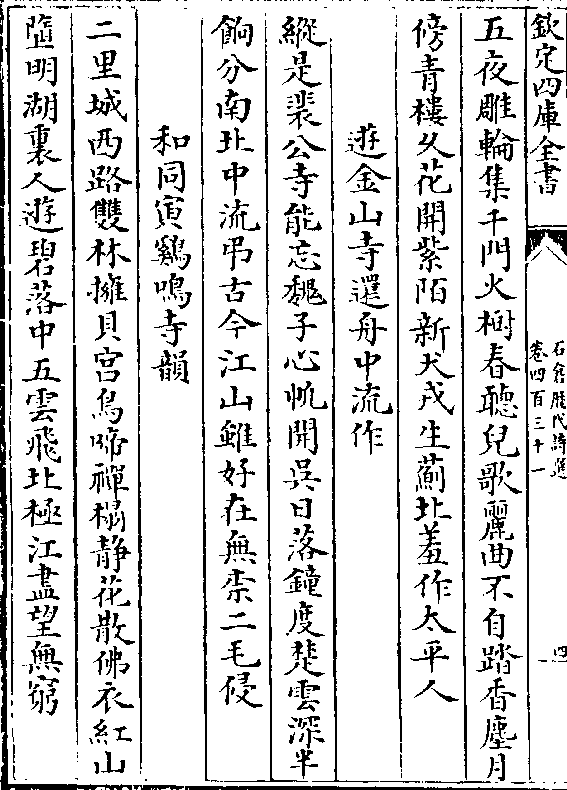 欽定四庫全書
石倉歷代詩選
卷四百三十一
四
五夜雕輪集千門火樹春聽兒歌麗曲不自踏香塵月
傍青樓久花開紫陌新犬戎生薊北羞作太平人
遊金山寺還舟中流作
縱是裴公寺能忘魏子心帆開吳日落鐘度楚雲深半
餉分南北中流弔古今江山雖好在無柰二毛侵
和同寅鷄鳴寺韻
二里城西路雙林擁貝宮鳥啼禪榻静花散佛衣紅山
墮明湖裏人遊碧落中五雲飛北極江盡望無窮